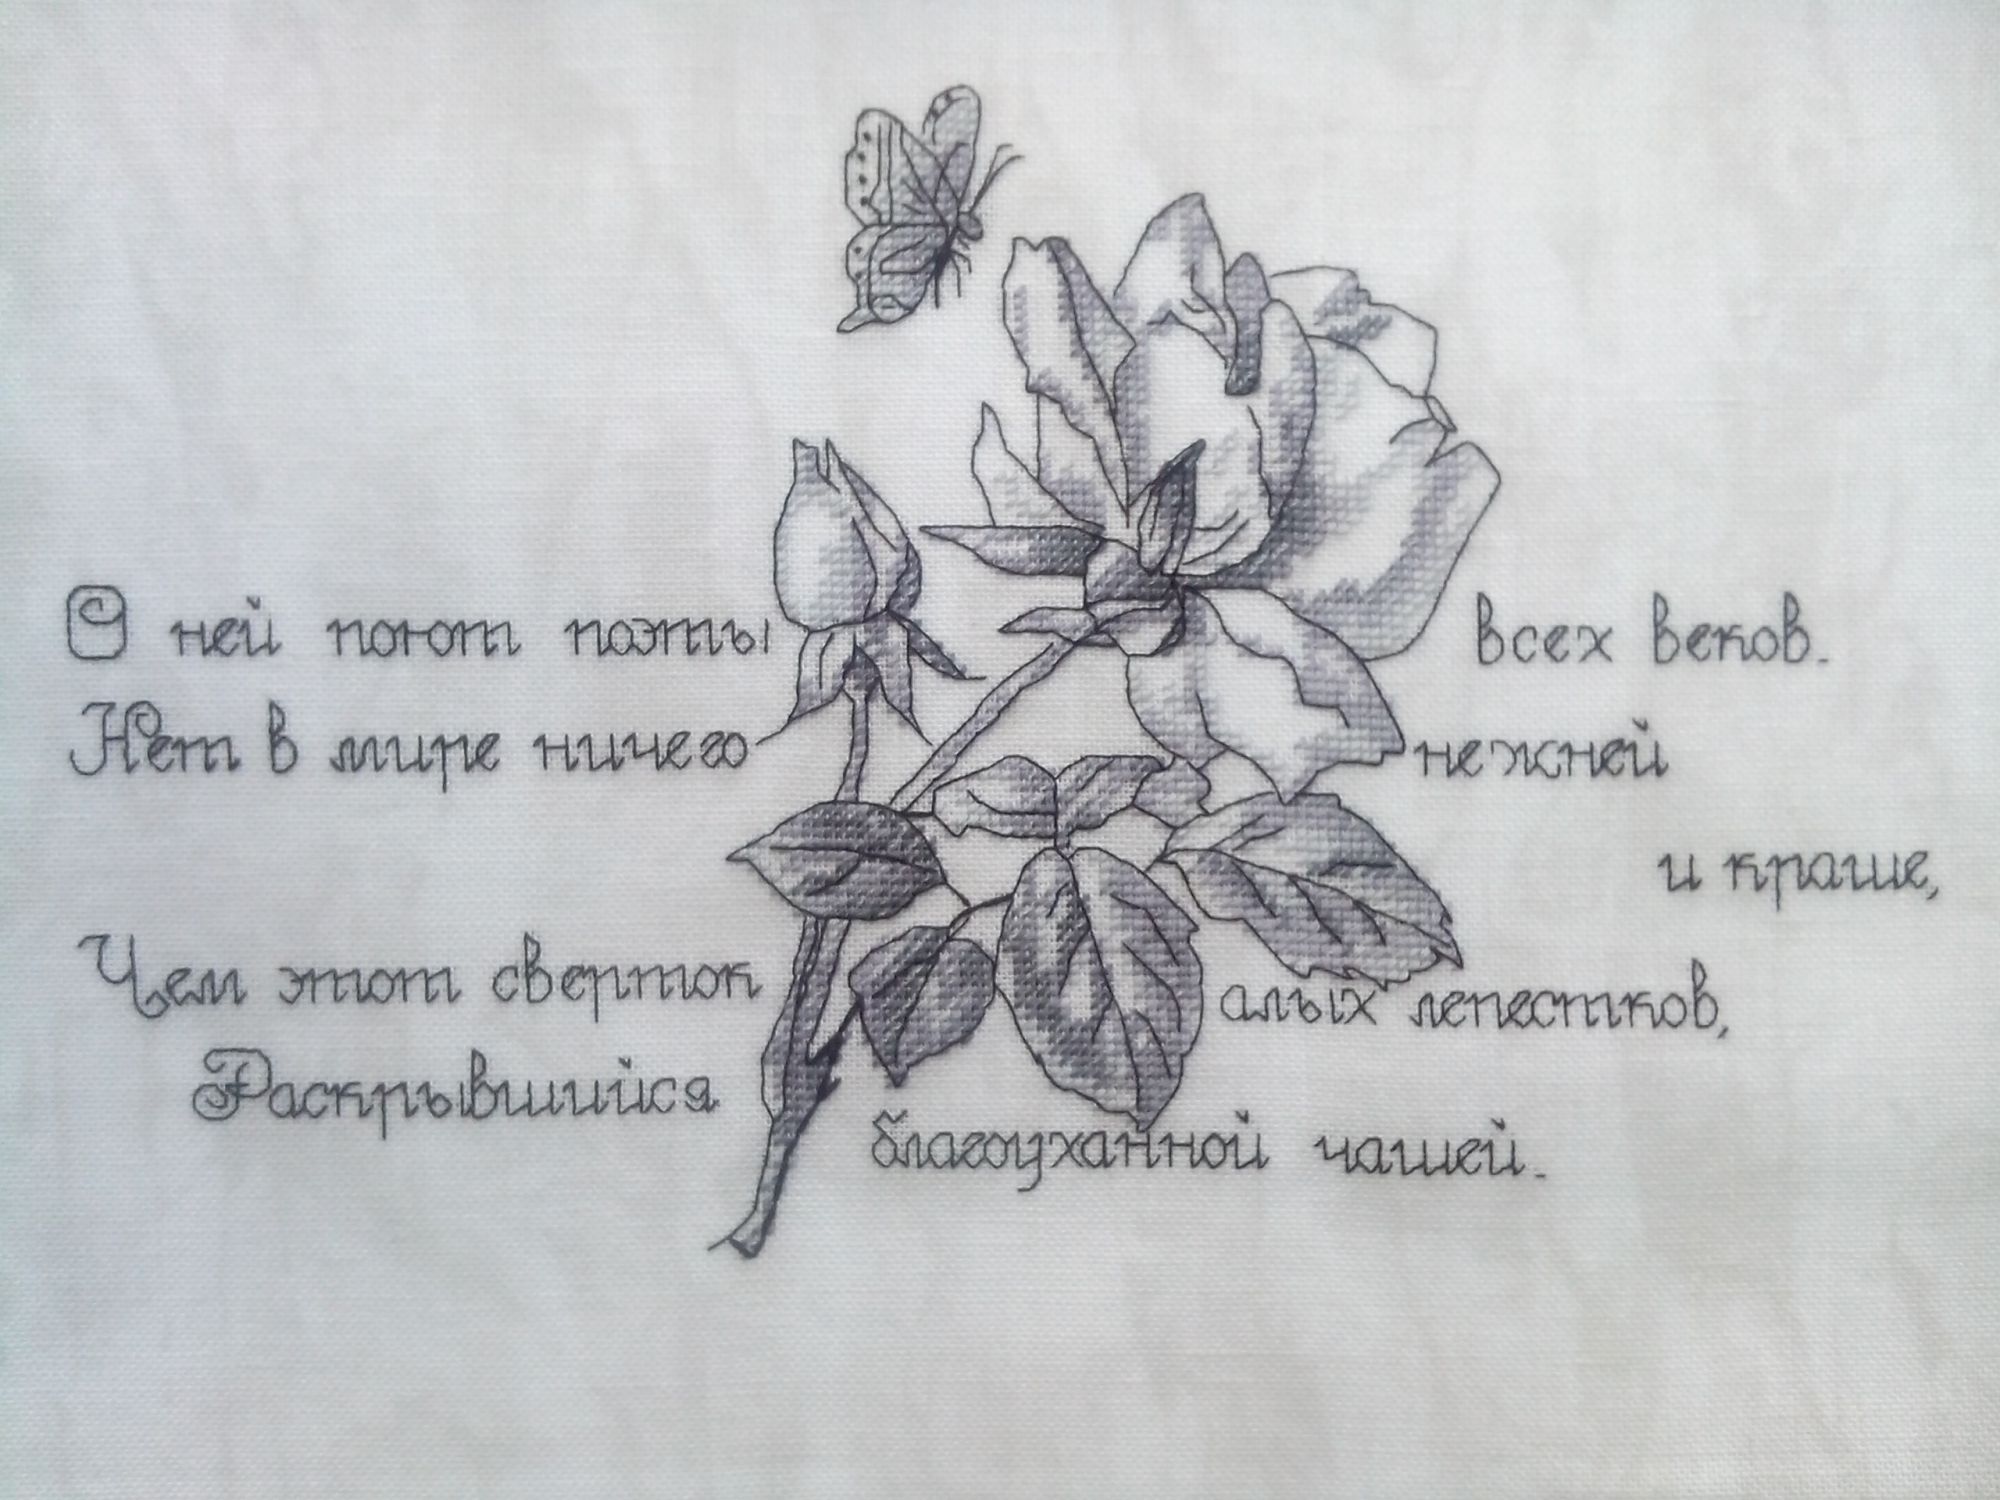 О ней поют поэты всех веков.
Нет в мире ничего нежней
и краше,
Чем этот сверток алых лепестков,
Раскрывшийся благоуханной чашей.